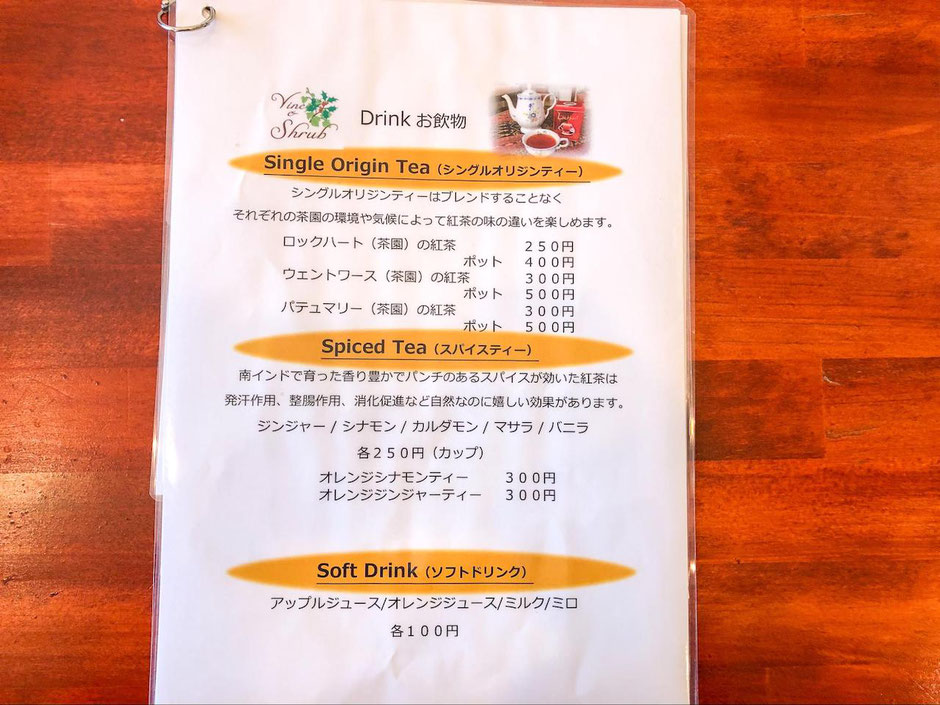 Vine & Shrub
Drink お飲物
Single Origin Tea（シングルオリジンティー）
シングルオリジンティーはブレンドすることなく
それぞれの茶園の環境や気候によって紅茶の味の違いを楽しめます。
ロックハート（茶園）の紅茶　２５０円
ポット　４００円
ウェントワース（茶園）の紅茶　３００円
ポット　５００円
パテュマリー（茶園）の紅茶　３００円
ポット　５００円
Spiced Tea（スパイスティー）
南インドで育った香り豊かでパンチのあるスパイスが効いた紅茶は
発汗作用、整腸作用、消化促進など自然なのに嬉しい効果があります。
ジンジャー / シナモン / カルダモン / マサラ / バニラ
各２５０円（カップ）
オレンジシナモンティー　３００円
オレンジジンジャーティー　３００円
Soft Drink（ソフトドリンク）
アップルジュース/オレンジジュース/ミルク/ミロ
各１００円